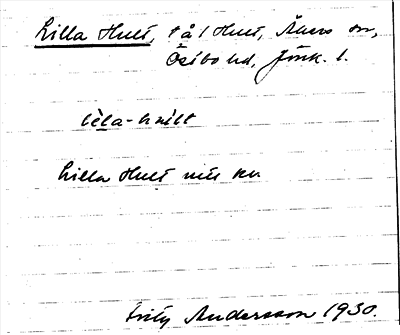 Lilla Hult, t å l Hult, Åkers sn,
Östbo hd, Jönk. l.
lìla-hult
Lilla Hult
Fritz Andersson 1930.